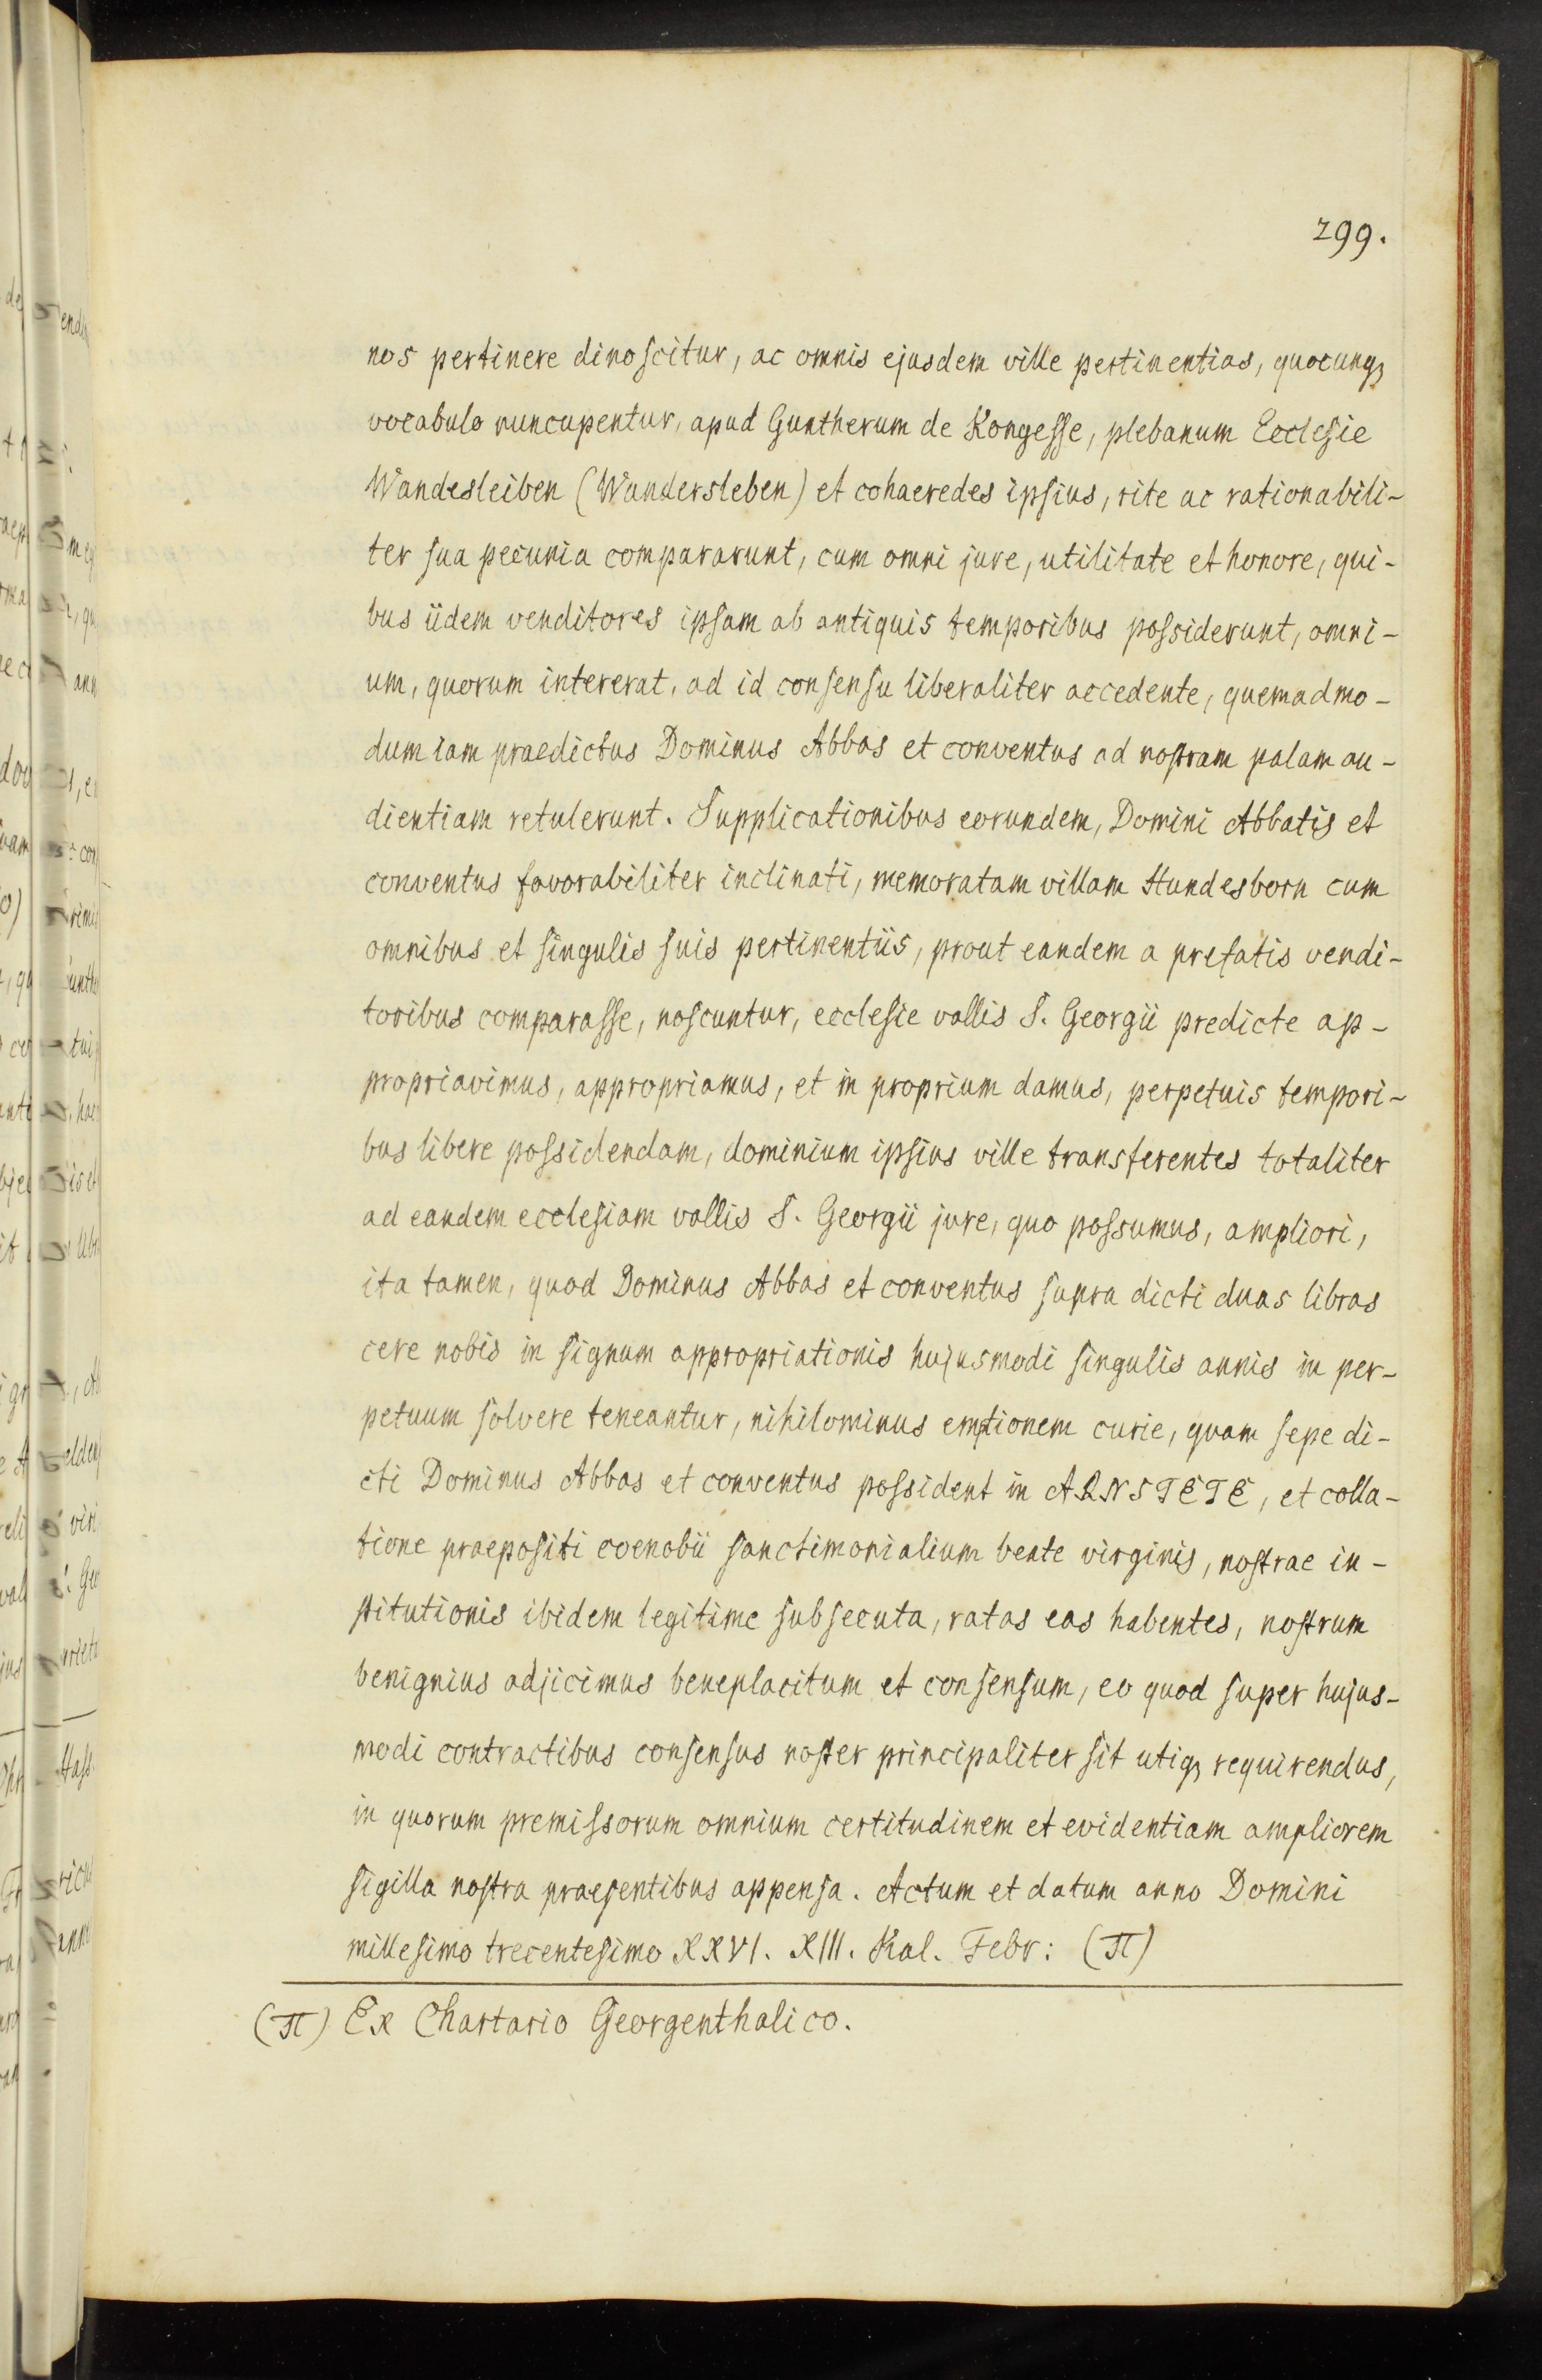 299.
nos pertinere dinoscitur, ac omnis ejusdem ville pertinentias, quocunqꝫ
vocabulo nuncupentur, apud Guntherum de Kongesse, plebanum Ecclesie
Wandesleiben (Wandersleben) et cohaeredes ipsius, rite ac rationabili-
ter sua pecunia compararunt, cum omni jure, utilitate et honore, qui-
bus iidem venditores ipsam ab antiquis temporibus possiderunt, omni-
um, quorum intererat, ad id consensu liberaliter accedente, quemadmo-
dum iam praedictus Dominus Abbas et conventus ad nostram palam au-
dientiam retulerunt. Supplicationibus eorundem, Domini Abbatis et
conventus favorabiliter inclinati, memoratam villam Hundesborn cum
omnibus et singulis suis pertinentiis, prout eandem a prefatis vendi-
toribus comparasse, noscuntur, ecclesie vallis S. Georgii predicte ap-
propriavimus, appropriamus, et in proprium damus, perpetuis tempori-
bus libere possidendam, dominium ipsius ville transferentes totaliter
ad eandem ecclesiam vallis S. Georgii jure, quo possumus, ampliori,
ita tamen, quod Dominus Abbas et conventus supra dicti duas libras
cere nobis in signum appropriationis hujusmodi singulis annis in per-
petuum solvere teneantur, nihilominus emptionem curie, quam sepe di-
cti Dominus Abbas et conventus possident in ARNSTETE, et colla-
tione praepositi coenobii sanctimonialium beate virginis, nostrae in-
stitutionis ibidem legitime subsecuta, ratas eas habentes, nostrum
benignius adjicimus beneplacitum et consensum, eo quod super hujus-
modi contractibus consensus noster principaliter sit utiqꝫ requirendus,
in quorum premissorum omnium certitudinem et evidentiam ampliorem
sigilla nostra praesentibus appensa. Actum et datum anno Domini
millesimo trecentesimo XXVI. XIII. Kal. Febr: (π)
(π) Ex Chartario Georgenthalico.